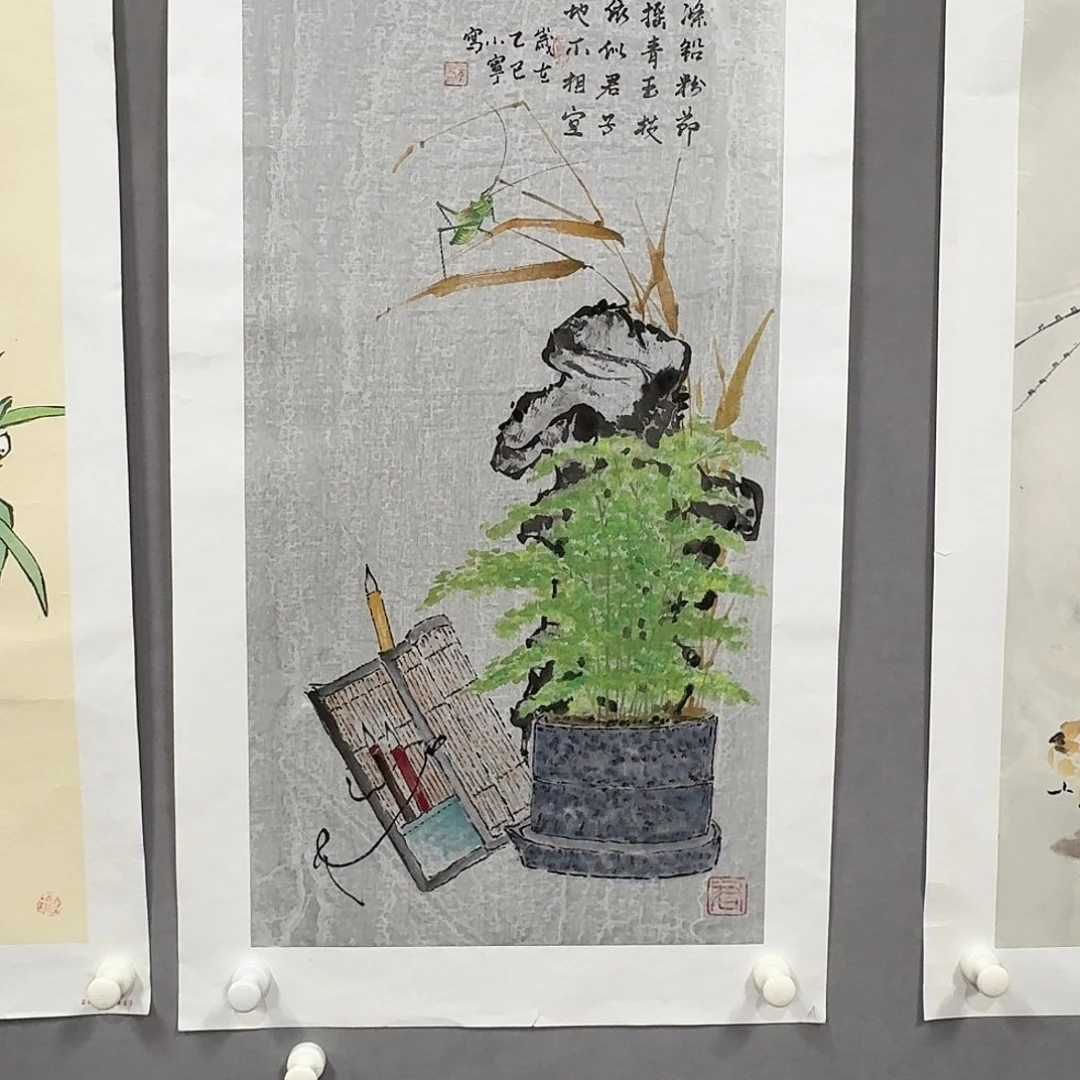 滌鉛粉節
搖青玉枝
依似君子
地不相宜
歲在
乙巳
小寧
寫